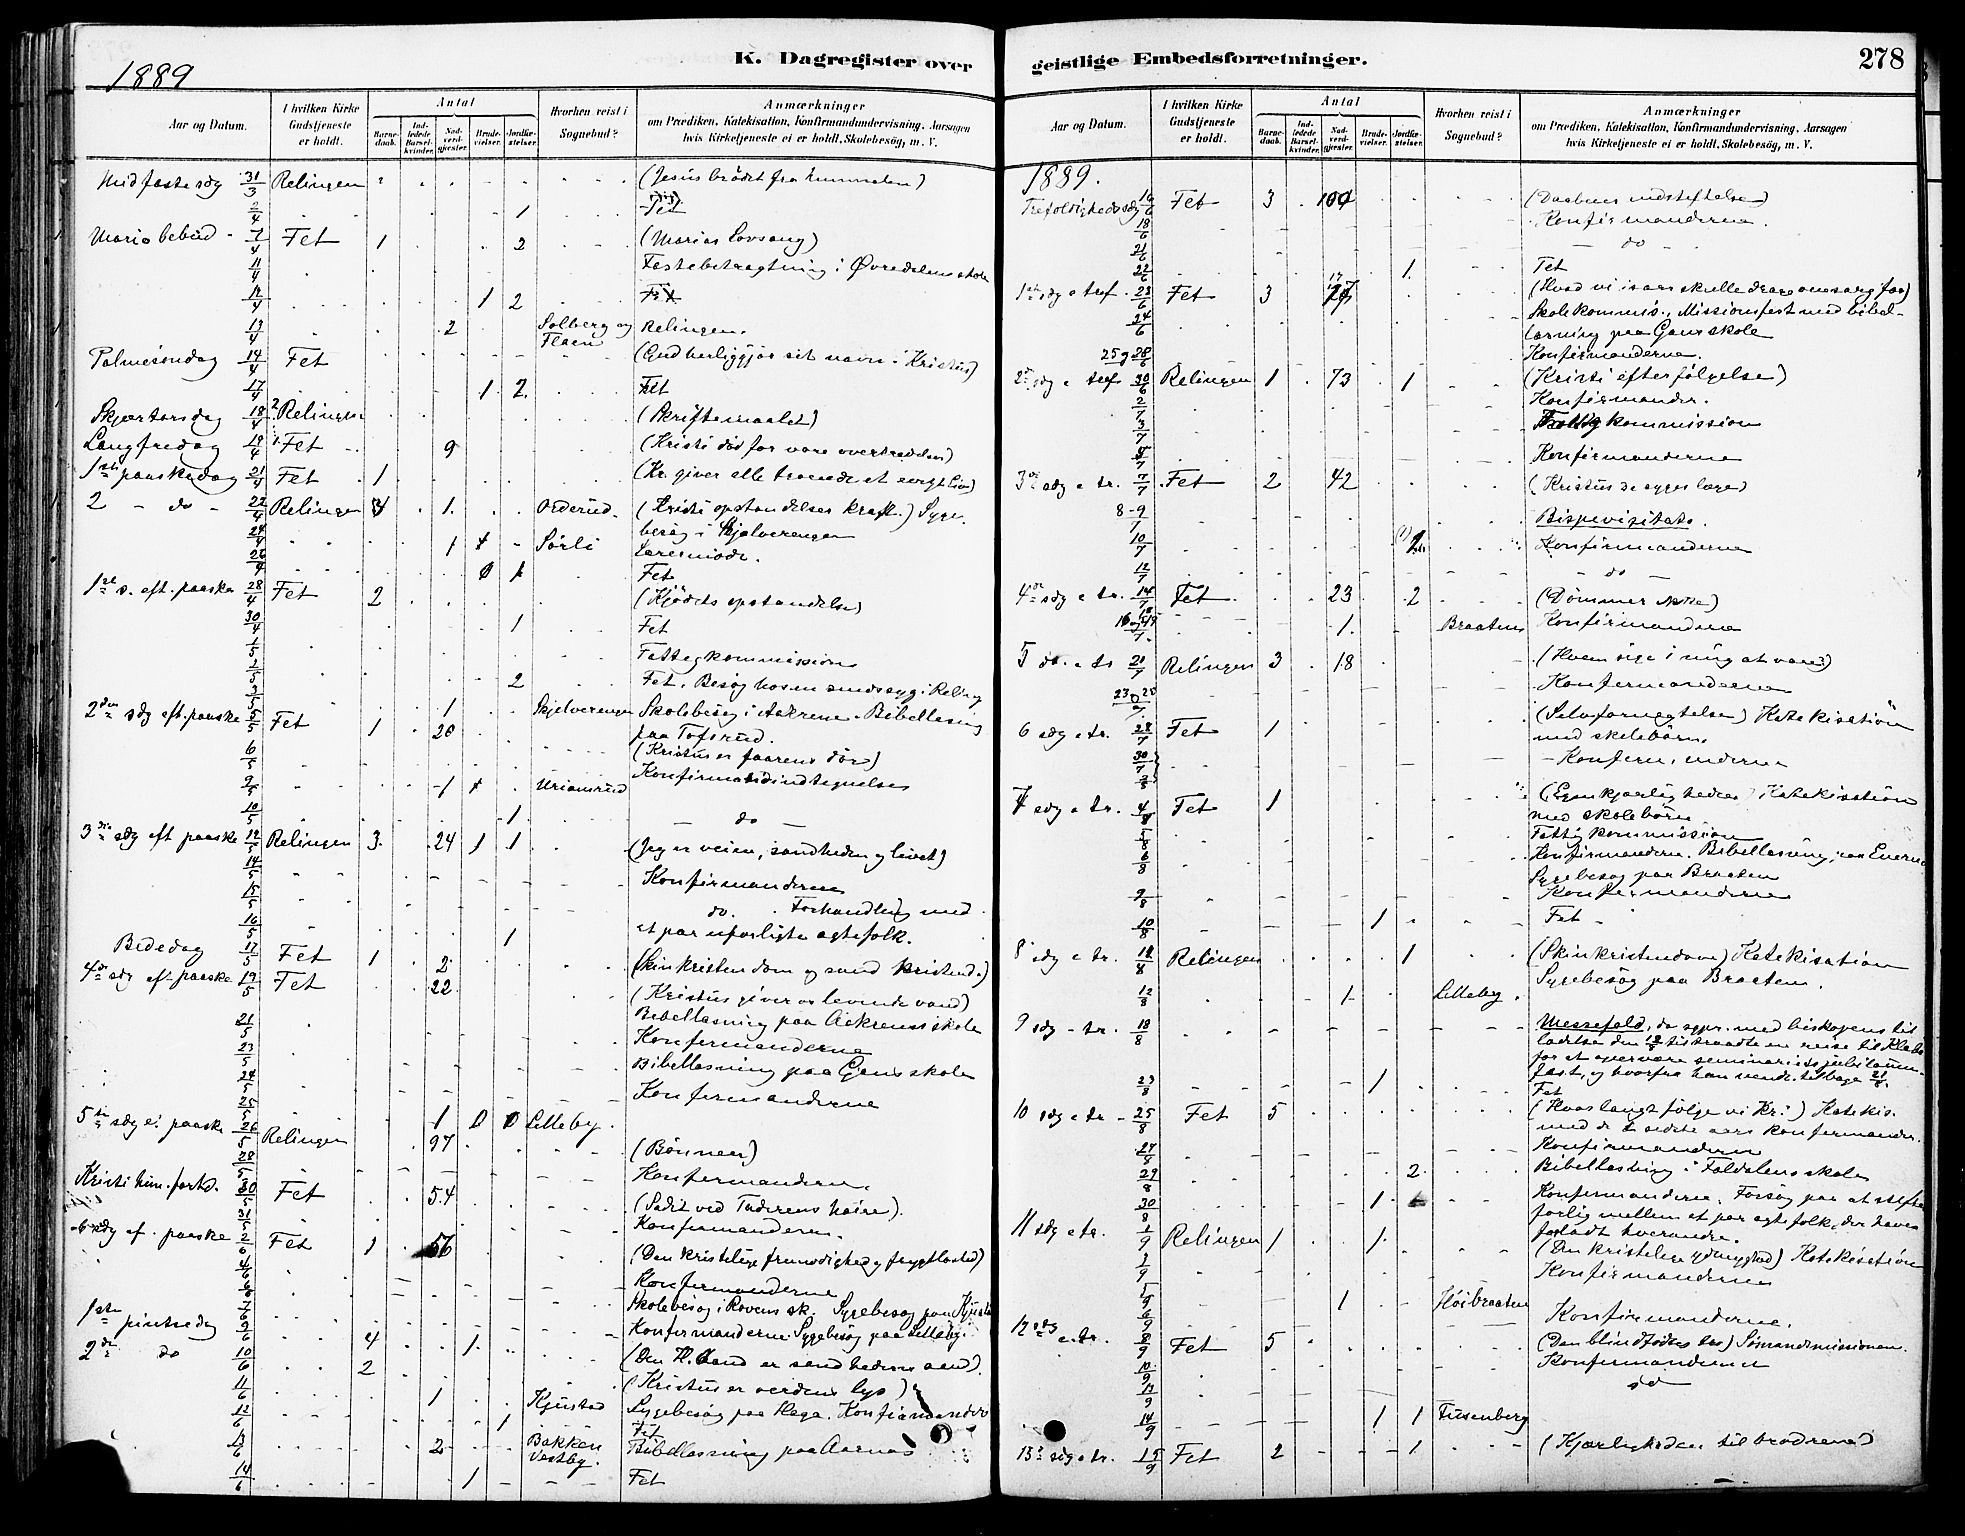 1889
K. Dagregister over
Aar og Datum. I hvilken Kirke Gudstjeneste er holdt. Antal Barnedaab. Indledede Barselkvinder. Nadverdgjester. Brudevielser. Jordfæstelser. Hvorhen reist i Sognebud? Anmærkninger om Prædiken, Katekisation, Konfirmandundervisning. Aarsagen hvis Kirketjeneste ei er holdt. Skolebesøg, m. V.
Midfastesdg 31/3 Relingen
2/4 1 Fet
Maria bebud - 7/4 Fet 1 2 (Marias Lovsang)
11/4 Fastebetragtning i Øvredalens skole
12/4 1 2 Fet
13/4 2 Solberg og Flaen Relingen.
Palmesøndag 14/4 Fet
17/4 1 2. Fet
Skjærtorsdag 18/4 Relingen (Skriftemaalet)
Langfredag 19/4 Fet 9 (Kristi død for vore overtrædelser)
1ste paaskedag 21/4 Fet 1 (Kr. giver alle troende et evigt liv)
2 - do - 22/4 Relingen 4 1. Orderud. (Kristi opstandelses kraft.) Syge-
besøg i Skjelverengen
24/4 1 Sørli Læremøde.
26/4 Fet
1ste s. eft. paaske 28/4 Fet 2 (Kjødets opstandelse)
30/4 1 Fet
1/5 Fattigkommission
2/5 2 Fet. Besøg hos en sindssyg i Reling.
3/5 1 Skjelverengen Skolebesøg i Aakrene. Bibellæsning
paa Tofsrud.
2den sdg eft. paaske 5/5 Fet 1 20 (Kristus er faarenes dør)
6/5 Konfirmandindtegnelse
9/5 1 Uriansrud
10/5 1 - do -
3die sdg eft paaske 12/5 Relingen 3. 24 1 1 (Jeg er veien, sandheden og livet)
14/5 Konfirmanderne
15/5 do. Forhandling med
et par uforligte ægtefolk.
16/5 1
Bededag 17/5 Fet 1 2 (Skinkristendom og sand kristend.)
4de sdg eft paaske 19/5 Fet 22 (Kristus giver os levende vand)
21/5 Bibellæsning paa Aakrens skole
23/5 Konfirmanderne
24/5 Bibellæsning paa Gans skole
25/5 Konfirmanderne
1 0 0 Lilleby.
5te sdg e. paaske 26/5 Relingen 97 (Bønnen)
28/5 Konfirmanderne.
Kristi him. fartd. 30/5 Fet 54 (Sædet ved Faderens høire).
31/5 Konfirmanderne.
6 sdg ef. paaske 2/6 Fet 1 56 (Den kristelige frimodighed og frygtløshed)
4/6 Konfirmanderne
6/6 Skolebesøg i Rovens sk. Sygebesøg paa Kjustad
7/6 Konfirmanderne. Sygebesøg paa Lilleby.
1ste pintsedag 9/6 4 1. (Den H. Aand er sandhedens aand).
2den do 10/6 2 (Kristus er verdens lys)
11/6 1 Kjustad Sygebesøg paa Hega. Konfirmander
12/6 1 Fet
13/6 2 Bakken Vestby. Bibellæsning paa Aarnæs
14/6 1 Fet
geistlige Embedsforretninger.
278
Aar og Datum. I hvilken Kirke Gudstjeneste er holdt. Antal Barnedaab. Indledede Barselkvinder. Nadverdgjester. Brudevielser. Jordfæstelser. Hvorhen reist i Sognebud? Anmærkninger om Prædiken, Katekisation, Konfirmandundervisning. Aarsagen hvis Kirketjeneste ei er holdt. Skolebesøg, m. V.
1889.
Trefoldighedssdg 16/6 Fet 3 100 (Daabens indstiftelse)
18/6 Konfirmanderne
21/6 - do -
22/6 1. Fet
1ste sdg e tref. 23/6 Fet 3 (Hvad vi især skulle drage omsorg for)
24/6 Skolekommis., Missionsfest med bibel-
læsning paa Gans skole
25 og 28/6 Konfirmanderne.
2den sdg e tref 30/6 Relingen 1 73 1 (Kristi efterfølgelse)
2/7 Konfirmander.
3/7 Fattigkommission
Konfirmanderne
3die sdg e. tr. 7/7 Fet 2 42 (Kristus de syges læge)
8-9/7 Bispevisitats.
10/7 Konfirmanderne
12/7 - do -
4de sdg e tr. 14/7 Fet 23 2 (Dømmer ikke)
1. Braaten Konfirmanderne
5 do. e tr 21/7 Relingen 3 18
Konfirmanderne
6 sdg e tr. 28/7 Fet 1 (Selvfornegtelse) Katekisation
med skolebørn.
30/7 Konfirmanderne
7 sdg e tr. 4/8 Fet 1 (Egenkjærligheden) Katekisation
med skolebørn
5/8 Fattigkommission
6/8 Konfirmanderne. Bibellæsning paa
Sygebesøg paa Braaten
9/8 Konfirmanderne
10/8 1 Fet
8 sdg e tr. 11/8 Relingen 1 (Skinkristendom) Katekisation
Sygebesøg paa Braaten.
12/8 1 Lilleby
9 sdg - tr. 18/8 Messefald, da sgpr. med biskopens til-
ladelse den 12/8 tiltraadte en reise til Klæbo
for at overvære seminariets jubilæums-
fest, og hvorfra han vendte tilbage 21/8.
23/8 1 Fet
10 sdg e tr - 25/8 Fet 5 (Hvor langt følge vi Kr.?) Katekis.
med de 2 sidste aars konfirmander.
27/8 Konfirmanderne
29/8 2 Bibellæsning i Faldalens skole
30/8 1 Konfirmanderne. Forsøg paa at stifte
forlig mellem et par ægtefolk, der have
forladt hverandre.
11 sdg e tr. 1/9 Relingen 1 1 (Den kristelige ydmyghed) Katekisation
3/9 Konfirmanderne
5/9 1 Høibraaten
6/9 Konfirmanderne.
12 sdg e. tr. 8/9 Fet 5 (Den blindfødte) Sømandsmissionen.
10/9 Konfirmanderne
do
14/9 1 1 Tusenberg
13 sdg e tr. 15/9 Fet 2 1 (Kjærligheden til brødrene)